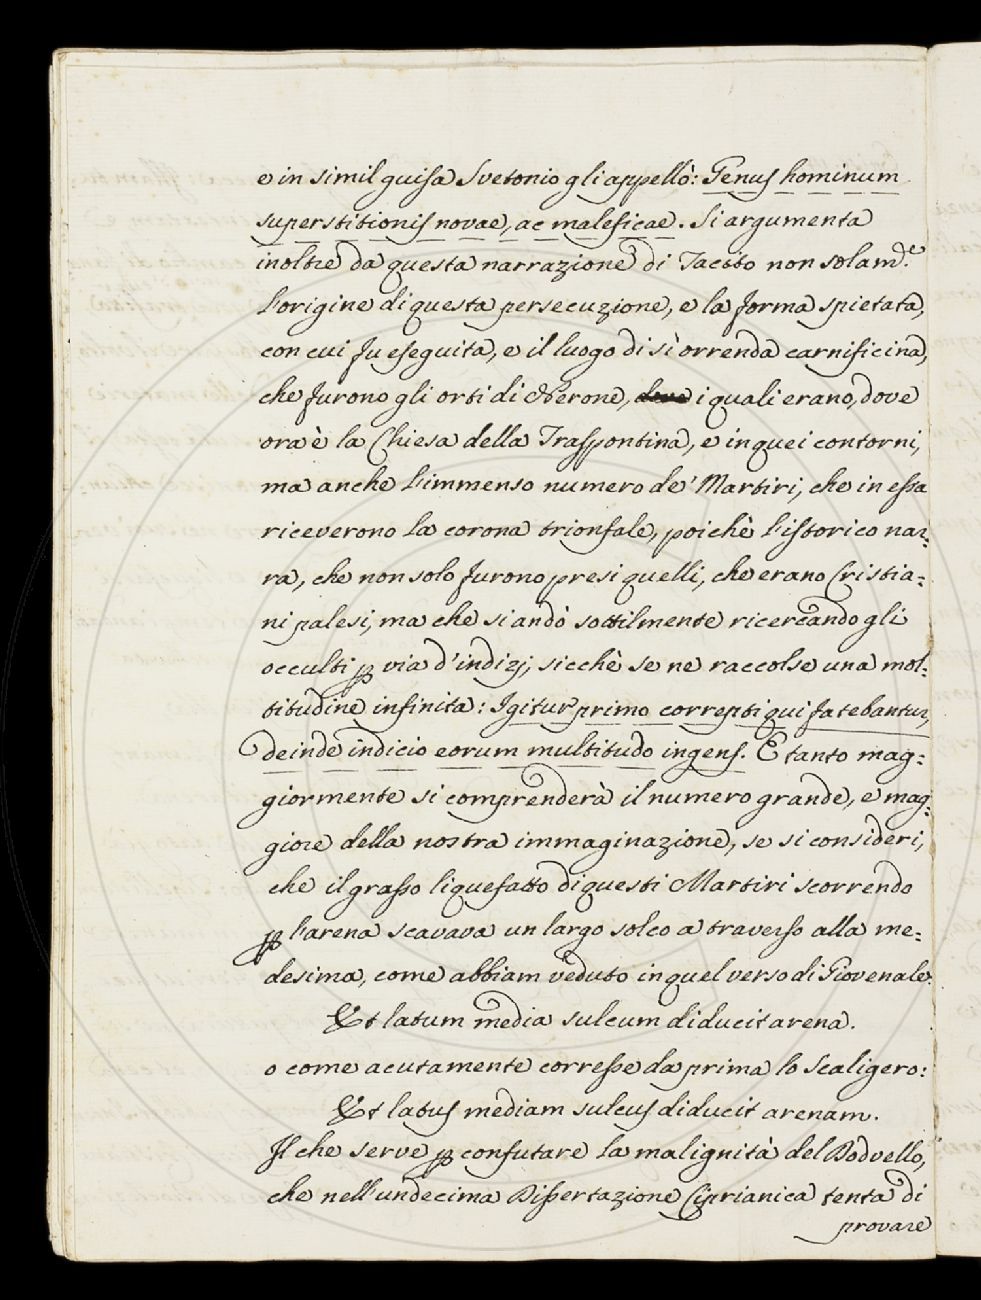 e in simil guisa Svetonio gli appellò: Genus hominum
superstitionis novae, ac maleficae. Si argumenta
inoltre da questa narrazione di Tacito non solamd.e
l'origine di questa persecuzione, e la forma spietata,
con cui fu eseguita, e il luogo di sì orrenda carnificina,
che furono gli orti di Nerone, dove i quali erano, dove
ora è la Chiesa della Traspontina, e in quei contorni,
ma anche l'immenso numero de' Martiri, che in essa
riceverono la corona trionfale, poichè l'istorico nar:
ra, che non solo furono presi quelli, che erano Cristia:
ni palesi, ma che si andò sottilmente ricercando gli
occulti ꝑ via d'indizj, sicchè se ne raccolse una mol:
titudine infinita: Igitur primo correpti qui fatebantur,
deinde indicio eorum multitudo ingens. E tanto mag:
giormente si comprenderà il numero grande, e mag:
giore della nostra immaginazione, se si consideri,
che il grasso liquefatto di questi Martiri scorrendo
ꝑ l'arena scavava un largo solco a traverso alla me:
desima, come abbiam veduto in quel verso di Giovenale:
Et latum media sulcum diducit arena.
o come acutamente corresse da prima lo Scaligero:
Et latus mediam sulcus diducit arenam.
Il che serve ꝑ confutare la malignità del Dodvello,
che nell'undecima Dissertazione Ciprianica tenta di
provare